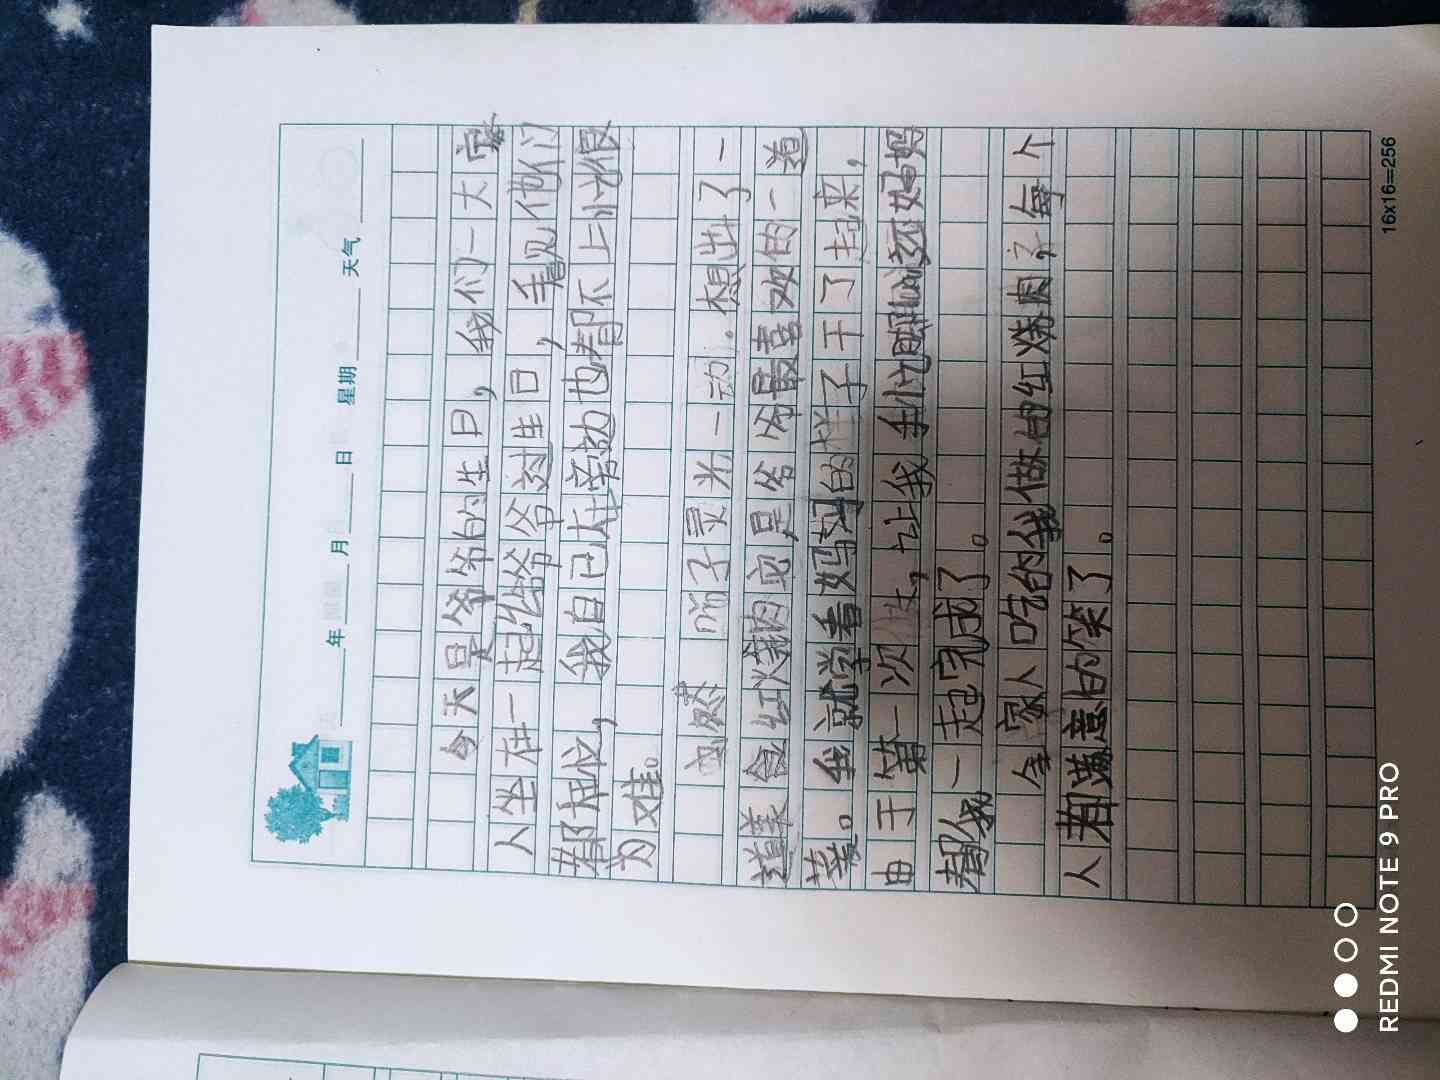 年 月 日 星期 天气
今天是爷爷的生日，我们一大家
人坐在一起给爷爷过生日，看见他们
都在忙，我自己在旁边也帮不上忙很
为难。
突然 脑子灵光一动.想出了一
道菜 红烧肉 是爷爷最喜欢的一道
菜。我就学着妈妈的样子干了起来，
由于第一次做，让我手忙脚 妈妈
帮我一起完成了。
全家人吃的我做的红烧肉 每个
人都满意的笑了。
16x16=256
REDMI NOTE 9 PRO